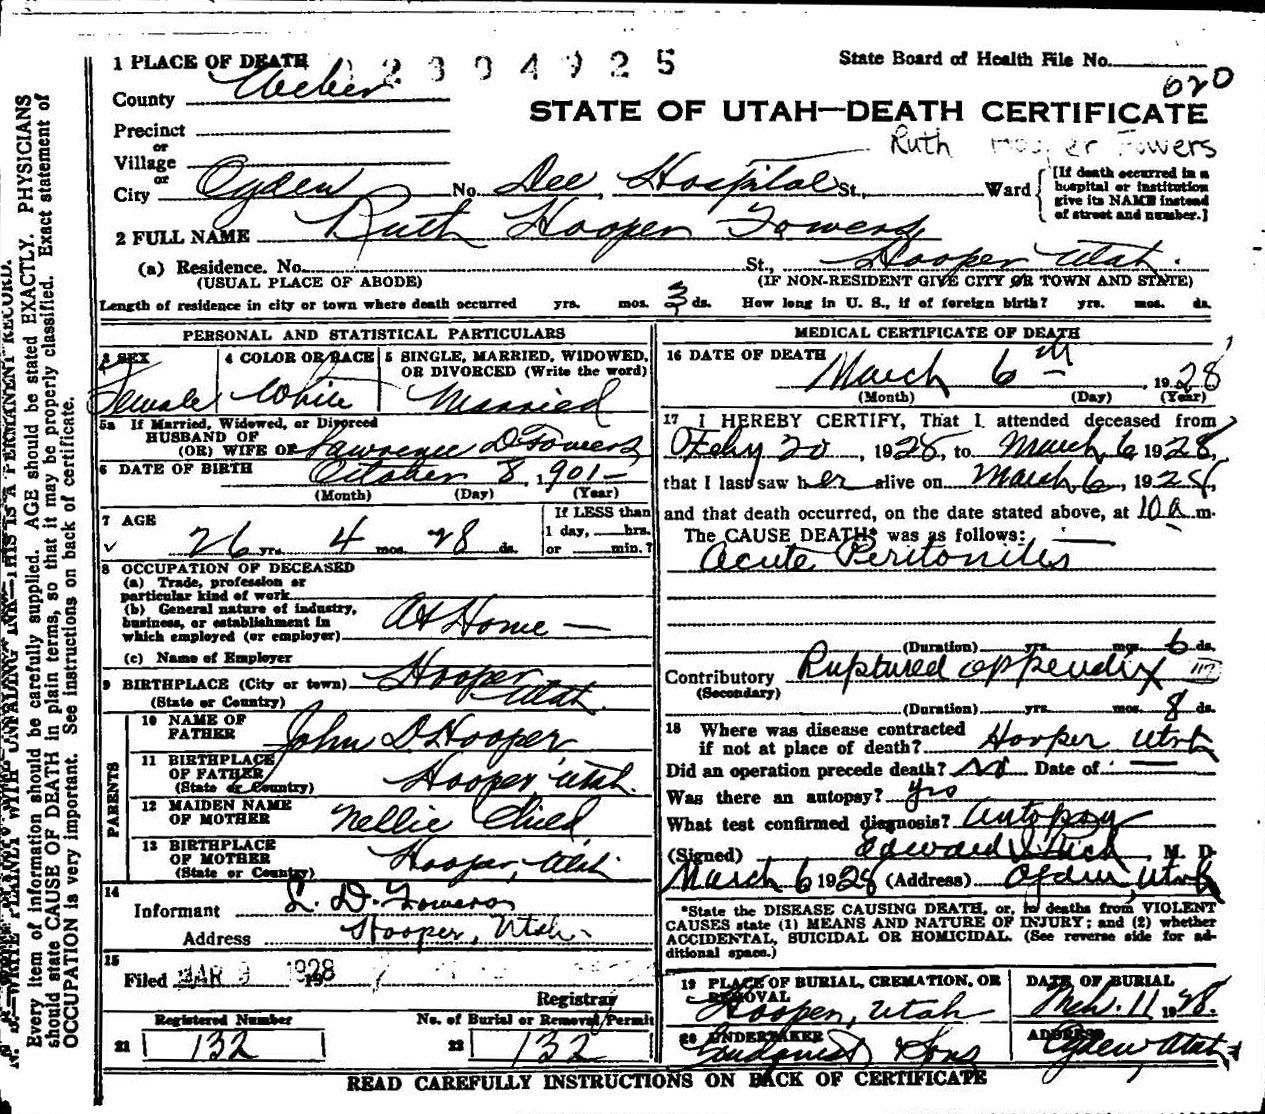 1 PLACE OF DEATH 2 3 0 4 9 2 5 State Board of Health File No.
020
County Weber
STATE OF UTAH—DEATH CERTIFICATE
Precinct
Ruth Hooper Towers
or
Village
or
City Ogden No. Dee Hospital St., Ward
[If death occurred in a hospital or institution give its NAME instead of street and number.]
2 FULL NAME Ruth Hooper Towers
(a) Residence. No. St., Hooper Utah.
(USUAL PLACE OF ABODE) (IF NON-RESIDENT GIVE CITY OR TOWN AND STATE)
Length of residence in city or town where death occurred yrs. mos. 3 ds. How long in U. S., if of foreign birth? yrs. mos. ds.
PERSONAL AND STATISTICAL PARTICULARS
3 SEX 4 COLOR OR RACE 5 SINGLE, MARRIED, WIDOWED,
OR DIVORCED (Write the word)
Female White Married
5a If Married, Widowed, or Divorced
HUSBAND OF
(OR) WIFE OF Lawrence D Towers
6 DATE OF BIRTH October 8, 1901—
(Month) (Day) (Year)
7 AGE
26 yrs. 4 mos. 28 ds.
If LESS than
1 day, hrs.
or min.?
8 OCCUPATION OF DECEASED
(a) Trade, profession or
particular kind of work
(b) General nature of industry,
business, or establishment in
which employed (or employer) At Home —
(c) Name of Employer
9 BIRTHPLACE (City or town) Hooper
(State or Country) Utah.
PARENTS
10 NAME OF
FATHER John D Hooper
11 BIRTHPLACE
OF FATHER Hooper Utah.
(State or Country)
12 MAIDEN NAME
OF MOTHER Nellie Child
13 BIRTHPLACE
OF MOTHER Hooper, Utah.
(State or Country)
14
Informant L. D. Towers
Address Hooper, Utah-
15
Filed MAR 9 1928
Registrar
Registered Number No. of Burial or Removal Permit
21 132 22 132
MEDICAL CERTIFICATE OF DEATH
16 DATE OF DEATH
March 6th, 1928
(Month) (Day) (Year)
17 I HEREBY CERTIFY, That I attended deceased from
Feby 20, 1928, to March 6 1928,
that I last saw her alive on March 6, 1928,
and that death occurred, on the date stated above, at 10 a m.
The CAUSE DEATH* was as follows:
Acute Peritonitis
(Duration) yrs. mos. 6 ds.
Contributory Ruptured appendix 117
(Secondary)
(Duration) yrs. mos. 8 ds.
18 Where was disease contracted
if not at place of death? Hooper Utah
Did an operation precede death? No Date of —
Was there an autopsy? yes
What test confirmed diagnosis? Autopsy
(Signed) Edward I Rich, M. D.
March 6 1928 (Address) Ogden, Utah
*State the DISEASE CAUSING DEATH, or, in deaths from VIOLENT
CAUSES state (1) MEANS AND NATURE OF INJURY; and (2) whether
ACCIDENTAL, SUICIDAL OR HOMICIDAL. (See reverse side for ad-
ditional space.)
19 PLACE OF BURIAL, CREMATION, OR REMOVAL DATE OF BURIAL
Hooper, Utah Mch. 11 1928.
20 UNDERTAKER ADDRESS
Lindquist & Sons Ogden, Utah
READ CAREFULLY INSTRUCTIONS ON BACK OF CERTIFICATE
N. B.—WRITE PLAINLY WITH UNFADING INK—THIS IS A PERMANENT RECORD.
Every item of information should be carefully supplied. AGE should be stated EXACTLY. PHYSICIANS
should state CAUSE OF DEATH in plain terms, so that it may be properly classified. Exact statement of
OCCUPATION is very important. See instructions on back of certificate.